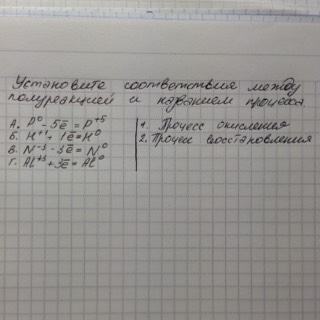 Установите соответствия между
полуреакцией и названием процесса
А. P⁰ - 5ē = P⁺⁵
Б. H⁺¹ + 1ē = H⁰
В. N⁻³ - 3ē = N⁰
Г. Al⁺³ + 3ē = Al⁰
1. Процесс окисления
2. Процесс восстановления